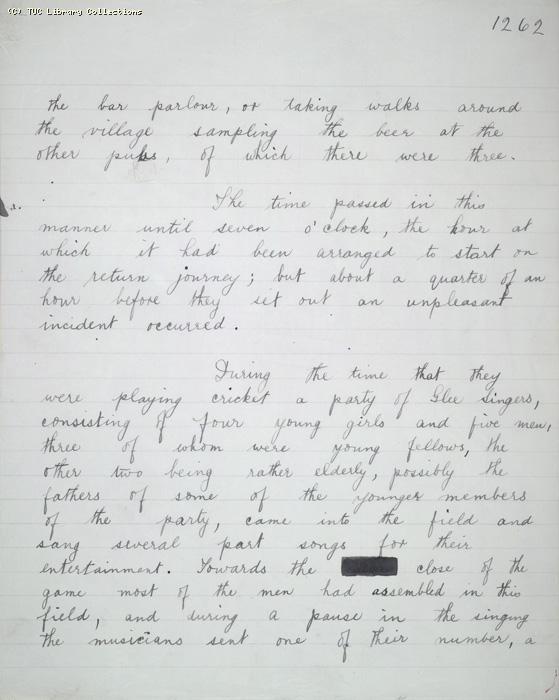 (C) TUC Library Collections
1262
the bar parlour, or taking walks around
the village sampling the beer at the
other pubs, of which there were three.
The time passed in this
manner until seven o'clock, the hour at
which it had been arranged to start on
the return journey; but about a quarter of an
hour before they set out an unpleasant
incident occurred.
During the time that they
were playing cricket a party of Glee singers,
consisting of four young girls and five men,
three of whom were young fellows, the
other two being rather elderly, possibly the
fathers of some of the younger members
of the party, came into the field and
sang several part songs for their
entertainment. Towards the close of the
game most of the men had assembled in this
field, and during a pause in the singing
the musicians sent one of their number, a